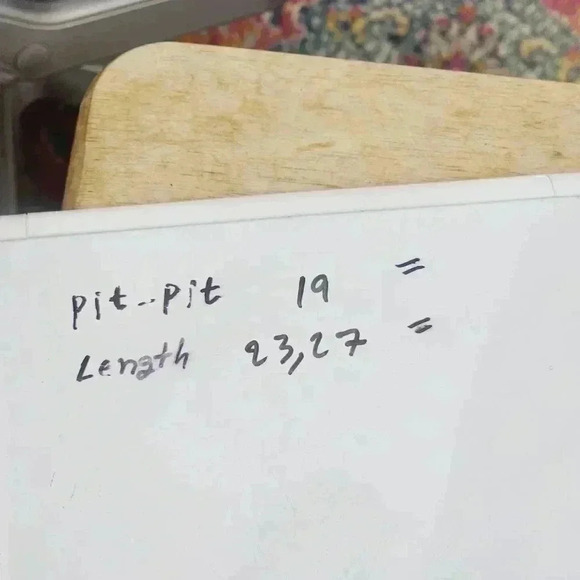 pit--pit 19 =
Length 23,27 =